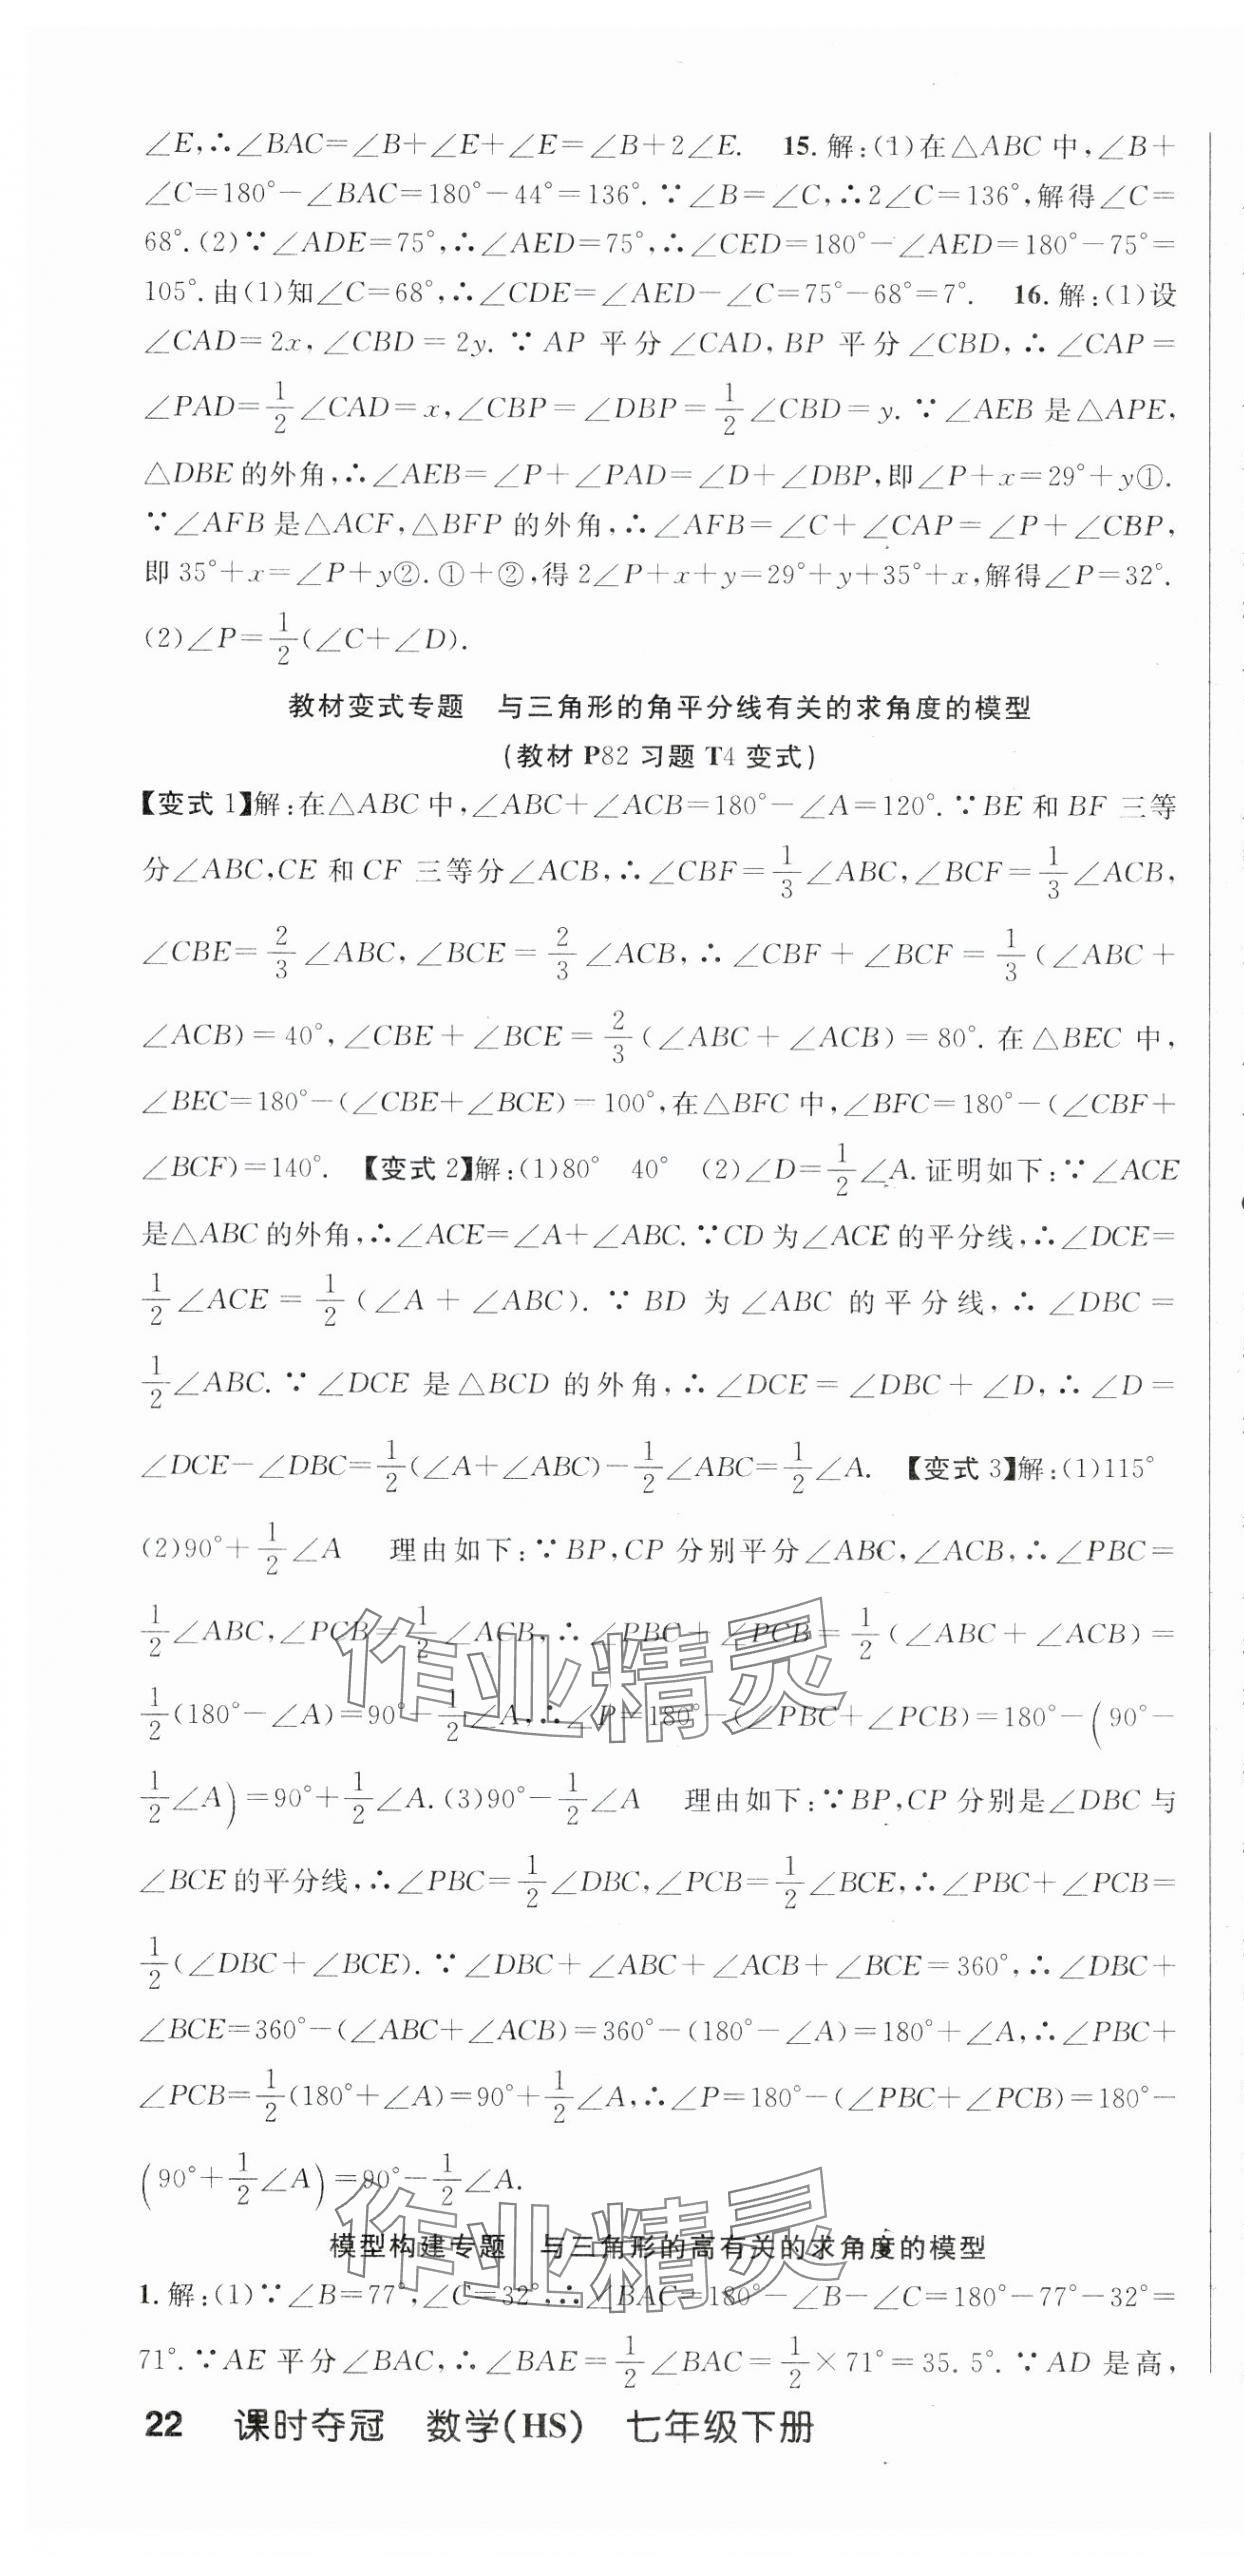 ∠E,∴∠BAC=∠B+∠E+∠E=∠B+2∠E. 15. 解:(1)在△ABC 中,∠B+
∠C=180°-∠BAC=180°-44°=136°.∵∠B=∠C,∴2∠C=136°,解得∠C=
68°.(2)∵∠ADE=75°,∴∠AED=75°,∴∠CED=180°-∠AED=180°-75°=
105°.由(1)知∠C=68°,∴∠CDE=∠AED-∠C=75°-68°=7°. 16. 解:(1)设
∠CAD=2x,∠CBD=2y. ∵ AP 平分∠CAD, BP 平分∠CBD, ∴ ∠CAP=
∠PAD=1/2∠CAD=x,∠CBP=∠DBP=1/2∠CBD=y. ∵∠AEB 是△APE,
△DBE 的外角,∴∠AEB=∠P+∠PAD=∠D+∠DBP,即∠P+x=29°+y①.
∵∠AFB 是△ACF,△BFP 的外角,∴∠AFB=∠C+∠CAP=∠P+∠CBP,
即 35°+x=∠P+y②.①+②,得 2∠P+x+y=29°+y+35°+x,解得∠P=32°.
(2)∠P=1/2(∠C+∠D).
教材变式专题 与三角形的角平分线有关的求角度的模型
(教材 P82 习题 T4 变式)
【变式 1】解:在△ABC 中,∠ABC+∠ACB=180°-∠A=120°.∵BE 和 BF 三等
分∠ABC,CE 和 CF 三等分∠ACB,∴∠CBF=1/3∠ABC,∠BCF=1/3∠ACB,
∠CBE=2/3∠ABC,∠BCE=2/3∠ACB,∴∠CBF+∠BCF=1/3(∠ABC+
∠ACB)=40°,∠CBE+∠BCE=2/3(∠ABC+∠ACB)=80°. 在△BEC 中,
∠BEC=180°-(∠CBE+∠BCE)=100°,在△BFC 中,∠BFC=180°-(∠CBF+
∠BCF)=140°. 【变式 2】解:(1)80° 40° (2)∠D=1/2∠A.证明如下:∵∠ACE
是△ABC 的外角,∴∠ACE=∠A+∠ABC.∵CD 为∠ACE 的平分线,∴∠DCE=
1/2∠ACE=1/2(∠A+∠ABC). ∵ BD 为∠ABC 的平分线,∴∠DBC=
1/2∠ABC. ∵∠DCE 是△BCD 的外角,∴∠DCE=∠DBC+∠D,∴∠D=
∠DCE-∠DBC=1/2(∠A+∠ABC)-1/2∠ABC=1/2∠A. 【变式 3】解:(1)115°
(2)90°+1/2∠A 理由如下:∵BP,CP 分别平分∠ABC,∠ACB,∴∠PBC=
1/2∠ABC,∠PCB=1/2∠ACB,∴∠PBC+∠PCB=1/2(∠ABC+∠ACB)=
1/2(180°-∠A)=90°-1/2∠A,∴∠P=180°-(∠PBC+∠PCB)=180°-(90°-
1/2∠A)=90°+1/2∠A.(3)90°-1/2∠A 理由如下:∵BP,CP 分别是∠DBC 与
∠BCE 的平分线,∴∠PBC=1/2∠DBC,∠PCB=1/2∠BCE,∴∠PBC+∠PCB=
1/2(∠DBC+∠BCE). ∵∠DBC+∠ABC+∠ACB+∠BCE=360°,∴∠DBC+
∠BCE=360°-(∠ABC+∠ACB)=360°-(180°-∠A)=180°+∠A,∴∠PBC+
∠PCB=1/2(180°+∠A)=90°+1/2∠A,∴∠P=180°-(∠PBC+∠PCB)=180°-
(90°+1/2∠A)=90°-1/2∠A.
模型构建专题 与三角形的高有关的求角度的模型
1. 解:(1)∵∠B=77°,∠C=32°,∴∠BAC=180°-∠B-∠C=180°-77°-32°=
71°.∵AE 平分∠BAC,∴∠BAE=1/2∠BAC=1/2×71°=35.5°.∵AD 是高,
22 课时夺冠 数学(HS) 七年级下册
作业精灵
作业精灵